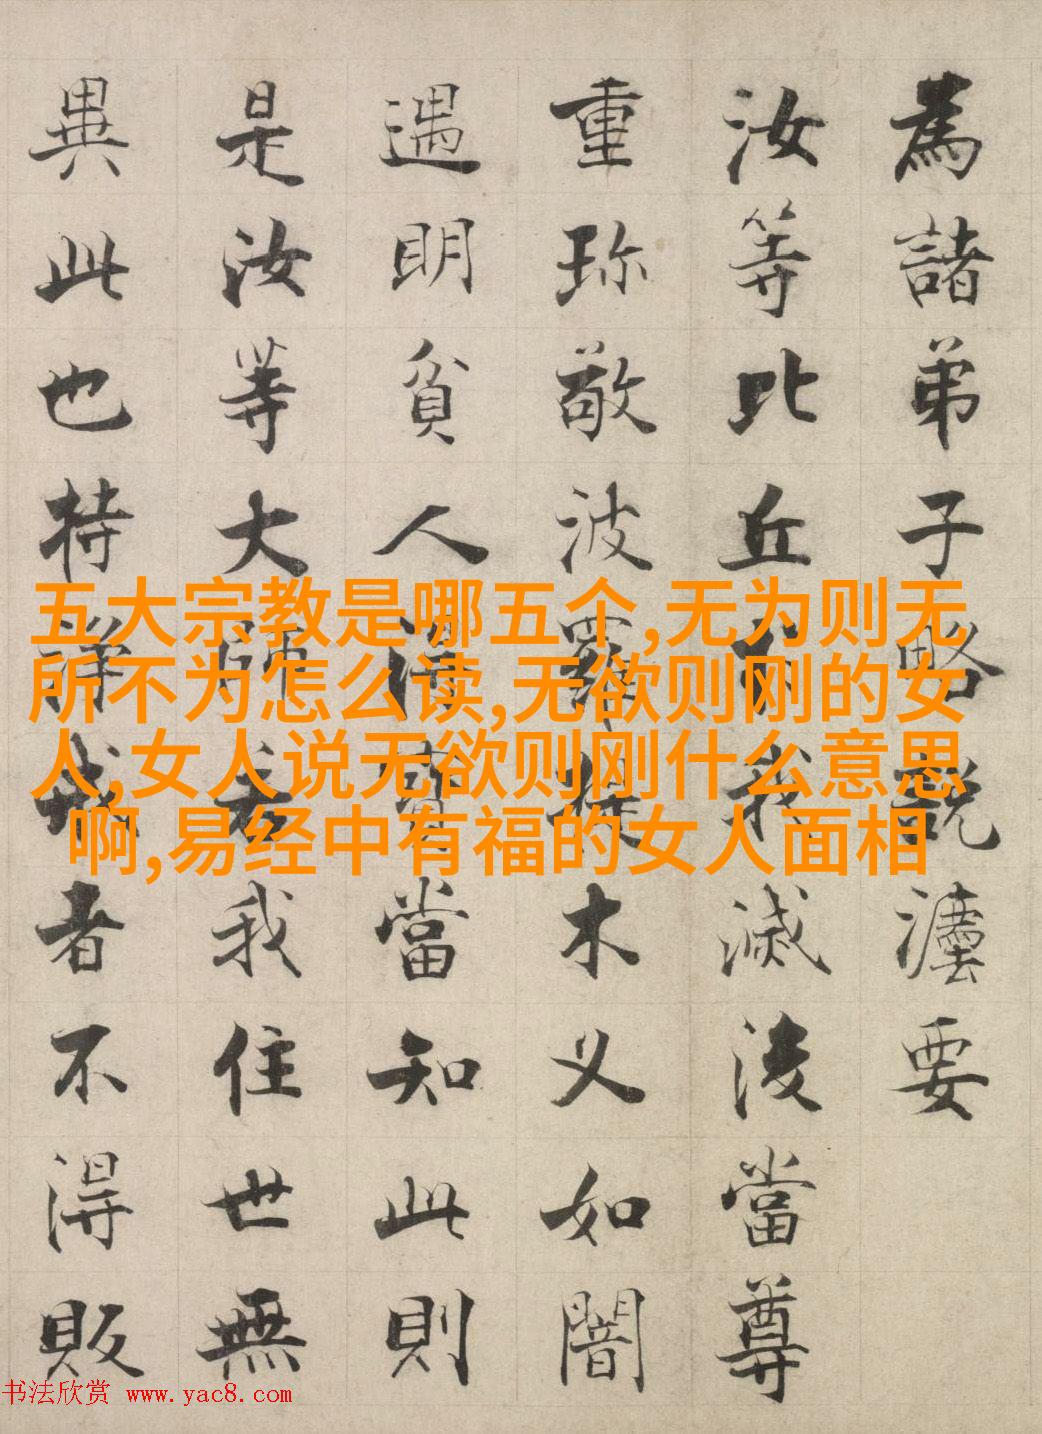 為諸弟子略説法要
汝等比丘於我滅後當尊
重珎敬波羅提木义如闇
遇明貧人得寶當知此則
是汝等大師若我住世無
異此也持淨戒者不得販
五大宗教是哪五个,无为则无
所不为怎么读,无欲则刚的女
人,女人说无欲则刚什么意思
啊,易经中有福的女人面相
书法欣赏 www.yac8.com